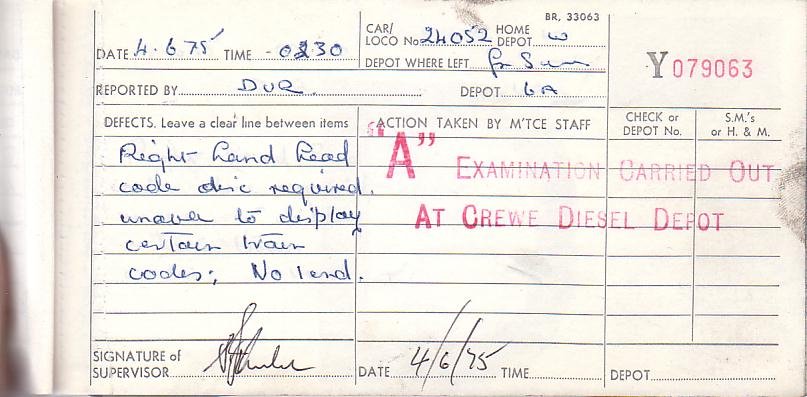 BR, 33063
DATE 4.6.75 TIME 0230
CAR/LOCO No. 24052 HOME DEPOT W
DEPOT WHERE LEFT
Y 079063
REPORTED BY DVR DEPOT 6A
DEFECTS. Leave a clear line between items
ACTION TAKEN BY M'TCE STAFF
CHECK or DEPOT No.
S.M.'s or H. & M.
Right hand head
code disc required.
to display
certain train
codes; No 1 end.
"A" EXAMINATION CARRIED OUT
AT CREWE DIESEL DEPOT
SIGNATURE of SUPERVISOR
DATE 4/6/75 TIME
DEPOT